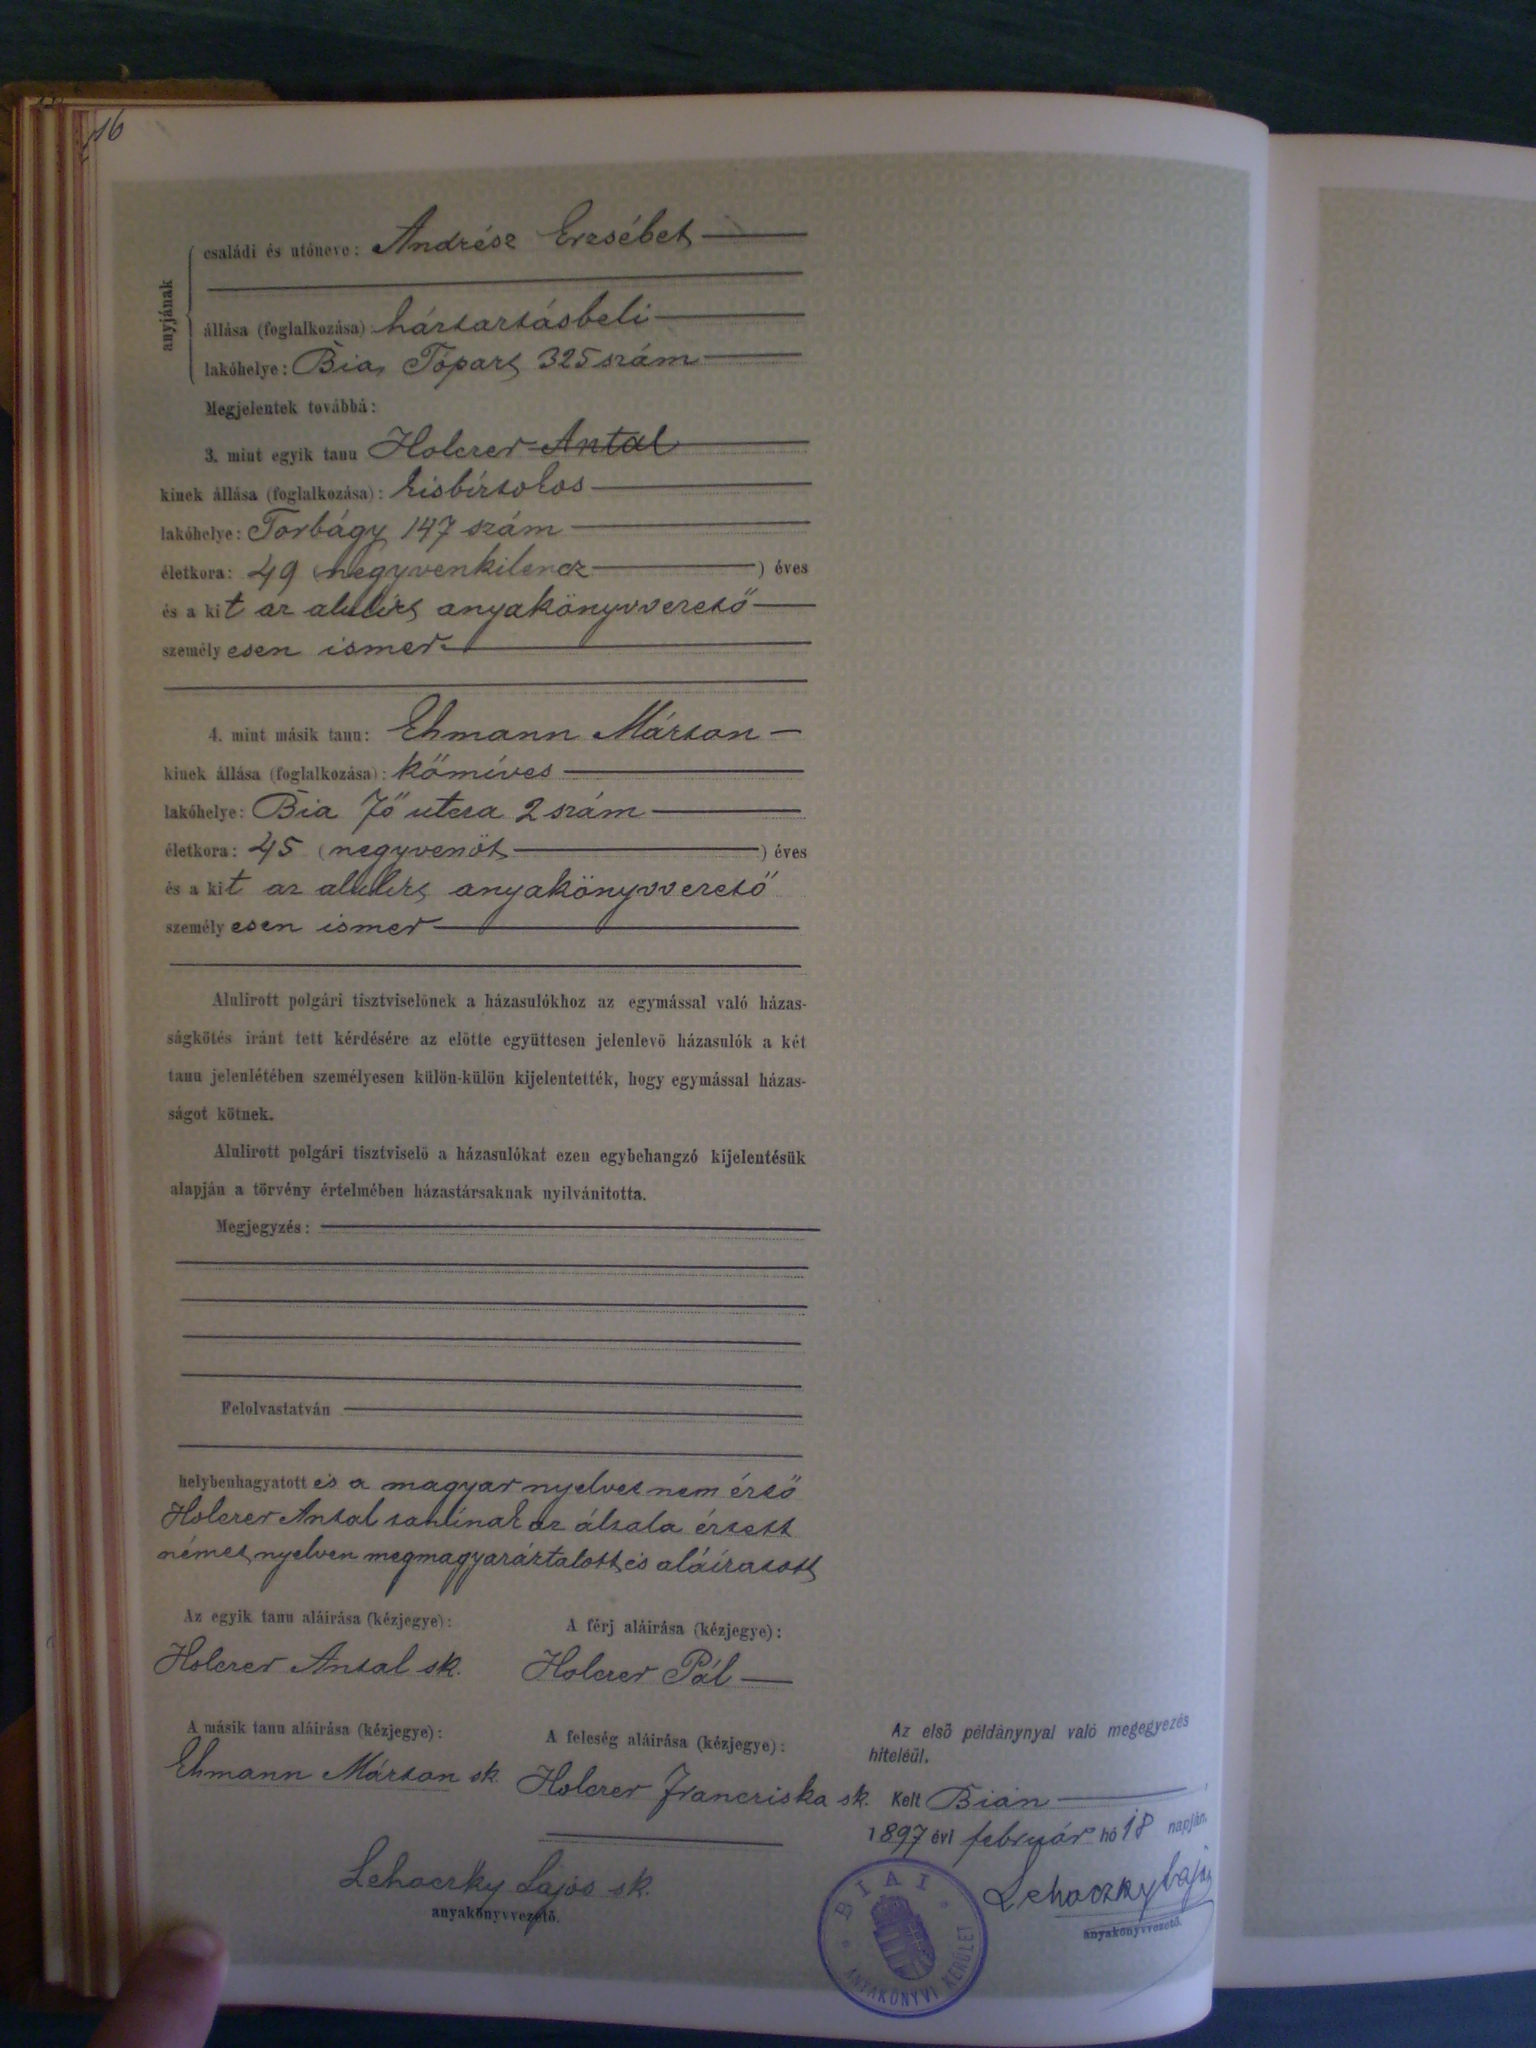 16
anyjának
családi és utóneve: Andrész Erzsébet
állása (foglalkozása): háztartásbeli
lakóhelye: Bia, Tópart 325 szám
Megjelentek továbbá:
3. mint egyik tanu Holczer Antal
kinek állása (foglalkozása): kisbirtokos
lakóhelye: Torbágy 147 szám
életkora: 49 (negyvenkilencz) éves
és a kit az alulirt anyakönyvvezető
személyesen ismer.
4. mint másik tanu: Ehmann Márton
kinek állása (foglalkozása): kőmíves
lakóhelye: Bia Fő utcza 2 szám
életkora: 45 (negyvenöt) éves
és a kit az alulirt anyakönyvvezető
személyesen ismer
Alulirott polgári tisztviselőnek a házasulókhoz az egymással való házas-
ságkötés iránt tett kérdésére az előtte együttesen jelenlevő házasulók a két
tanu jelenlétében személyesen külön-külön kijelentették, hogy egymással házas-
ságot kötnek.
Alulirott polgári tisztviselő a házasulókat ezen egybehangzó kijelentésük
alapján a törvény értelmében házastársaknak nyilvánitotta.
Megjegyzés:
Felolvastatván
helybenhagyatott és a magyar nyelvet nem értő
Holczer Antal tanúnak az általa értett
német nyelven megmagyaráztatott és aláiratott
Az egyik tanu aláirása (kézjegye):
A férj aláirása (kézjegye):
Holczer Antal sk.
Holczer Pál
A másik tanu aláirása (kézjegye):
A feleség aláirása (kézjegye):
Ehmann Márton sk.
Holczer Francziska sk.
Lehoczky Lajos sk.
anyakönyvvezető.
Az első példánynyal való megegyezés
hiteléül.
Kelt Bián
1897 évi február hó 18 napján.
Lehoczky Lajos
anyakönyvvezető.
BIAI
ANYAKÖNYVI KERÜLET